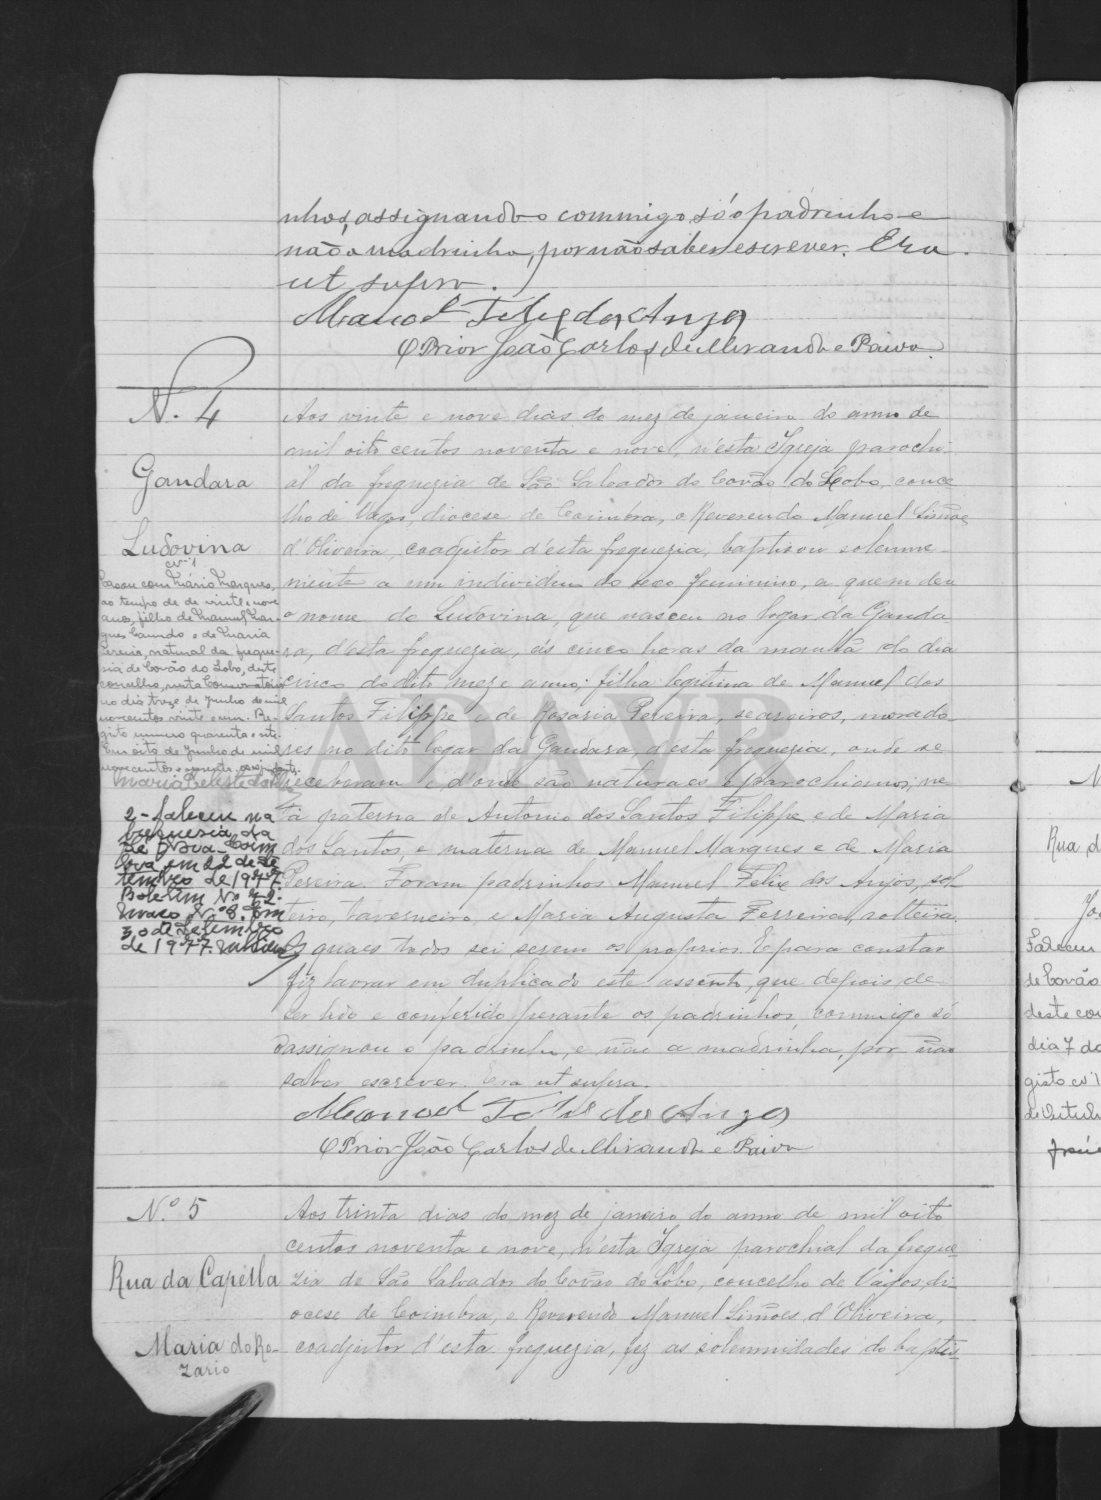 nhos, assignando commigo só o padrinho e
não a madrinha, por não saber escrever. Era
ut supra.
Manoel Felix dos Anjos
O Prior João Carlos de Miranda e Paiva
N. 4
Gandara
Ludovina
Nº 1
Casou com Mário Marques,
ao tempo de de vinte e nove
anos, filho de Manuel Mar-
ques e de Maria
Pereira, natural da fregue-
sia de Covão do Lobo, deste
concelho, nesta Conservatória
no dia treze de Junho de mil
novecentos vinte e um. Re-
gisto numero quarenta e
Em oito de Junho de mil
novecentos e
2 - faleceu na
freguesia da
Sé Nova - Coim
bra em 22 de Se
tembro de 1977
Boletim Nº 42.
Maço Nº 8. Em
30 de Setembro
de 1977.
Aos vinte e nove dias do mez de janeiro do anno de
mil oito centos noventa e nove, n'esta Igreja parochi-
al da freguezia de São Salvador do Covão do Lobo, conce
lho de Vagos, diocese de Coimbra, o Reverendo Manuel Simões
d'Oliveira, coadjutor d'esta freguezia, baptisou solemne-
mente a um individuo do sexo feminino, a quem deu
o nome de Ludovina, que nasceu no logar da Ganda
ra, d'esta freguezia, ás cinco horas da manhã do dia
cinco do dito mez e anno; filha legitima de Manuel dos
Santos Filippe e de Rosaria Pereira, seareiros, morado-
res no dito logar da Gandara, d'esta freguezia, onde se
receberam e d'onde são naturaes e parochianos; ne
ta paterna de Antonio dos Santos Filippe e de Maria
dos Santos, e materna de Manuel Marques e de Maria
Pereira. Foram padrinhos Manuel Felix dos Anjos, sol-
teiro, taverneiro, e Maria Augusta Ferreira, solteira.
Os quaes todos sei serem os proprios. E para constar
fiz lavrar em duplicado este assento, que depois de
ser lido e conferido perante os padrinhos, commigo só
assignou o padrinho, e não a madrinha, por não
saber escrever. Era ut supra.
Manoel Felix dos Anjos
O Prior João Carlos de Miranda e Paiva
N.º 5
Rua da Capella
Maria do Ro-
zario
Aos trinta dias do mez de janeiro do anno de mil oito
centos noventa e nove, n'esta Igreja parochial da fregue-
zia de São Salvador do Covão do Lobo, concelho de Vagos, di-
ocese de Coimbra, o Reverendo Manuel Simões d'Oliveira,
coadjutor d'esta freguezia, fez as solemnidades do baptis-
ADAVR
Rua d
Jo
Faleceu
de Covão
deste con
dia 7 do
gisto nº 1
de Outub